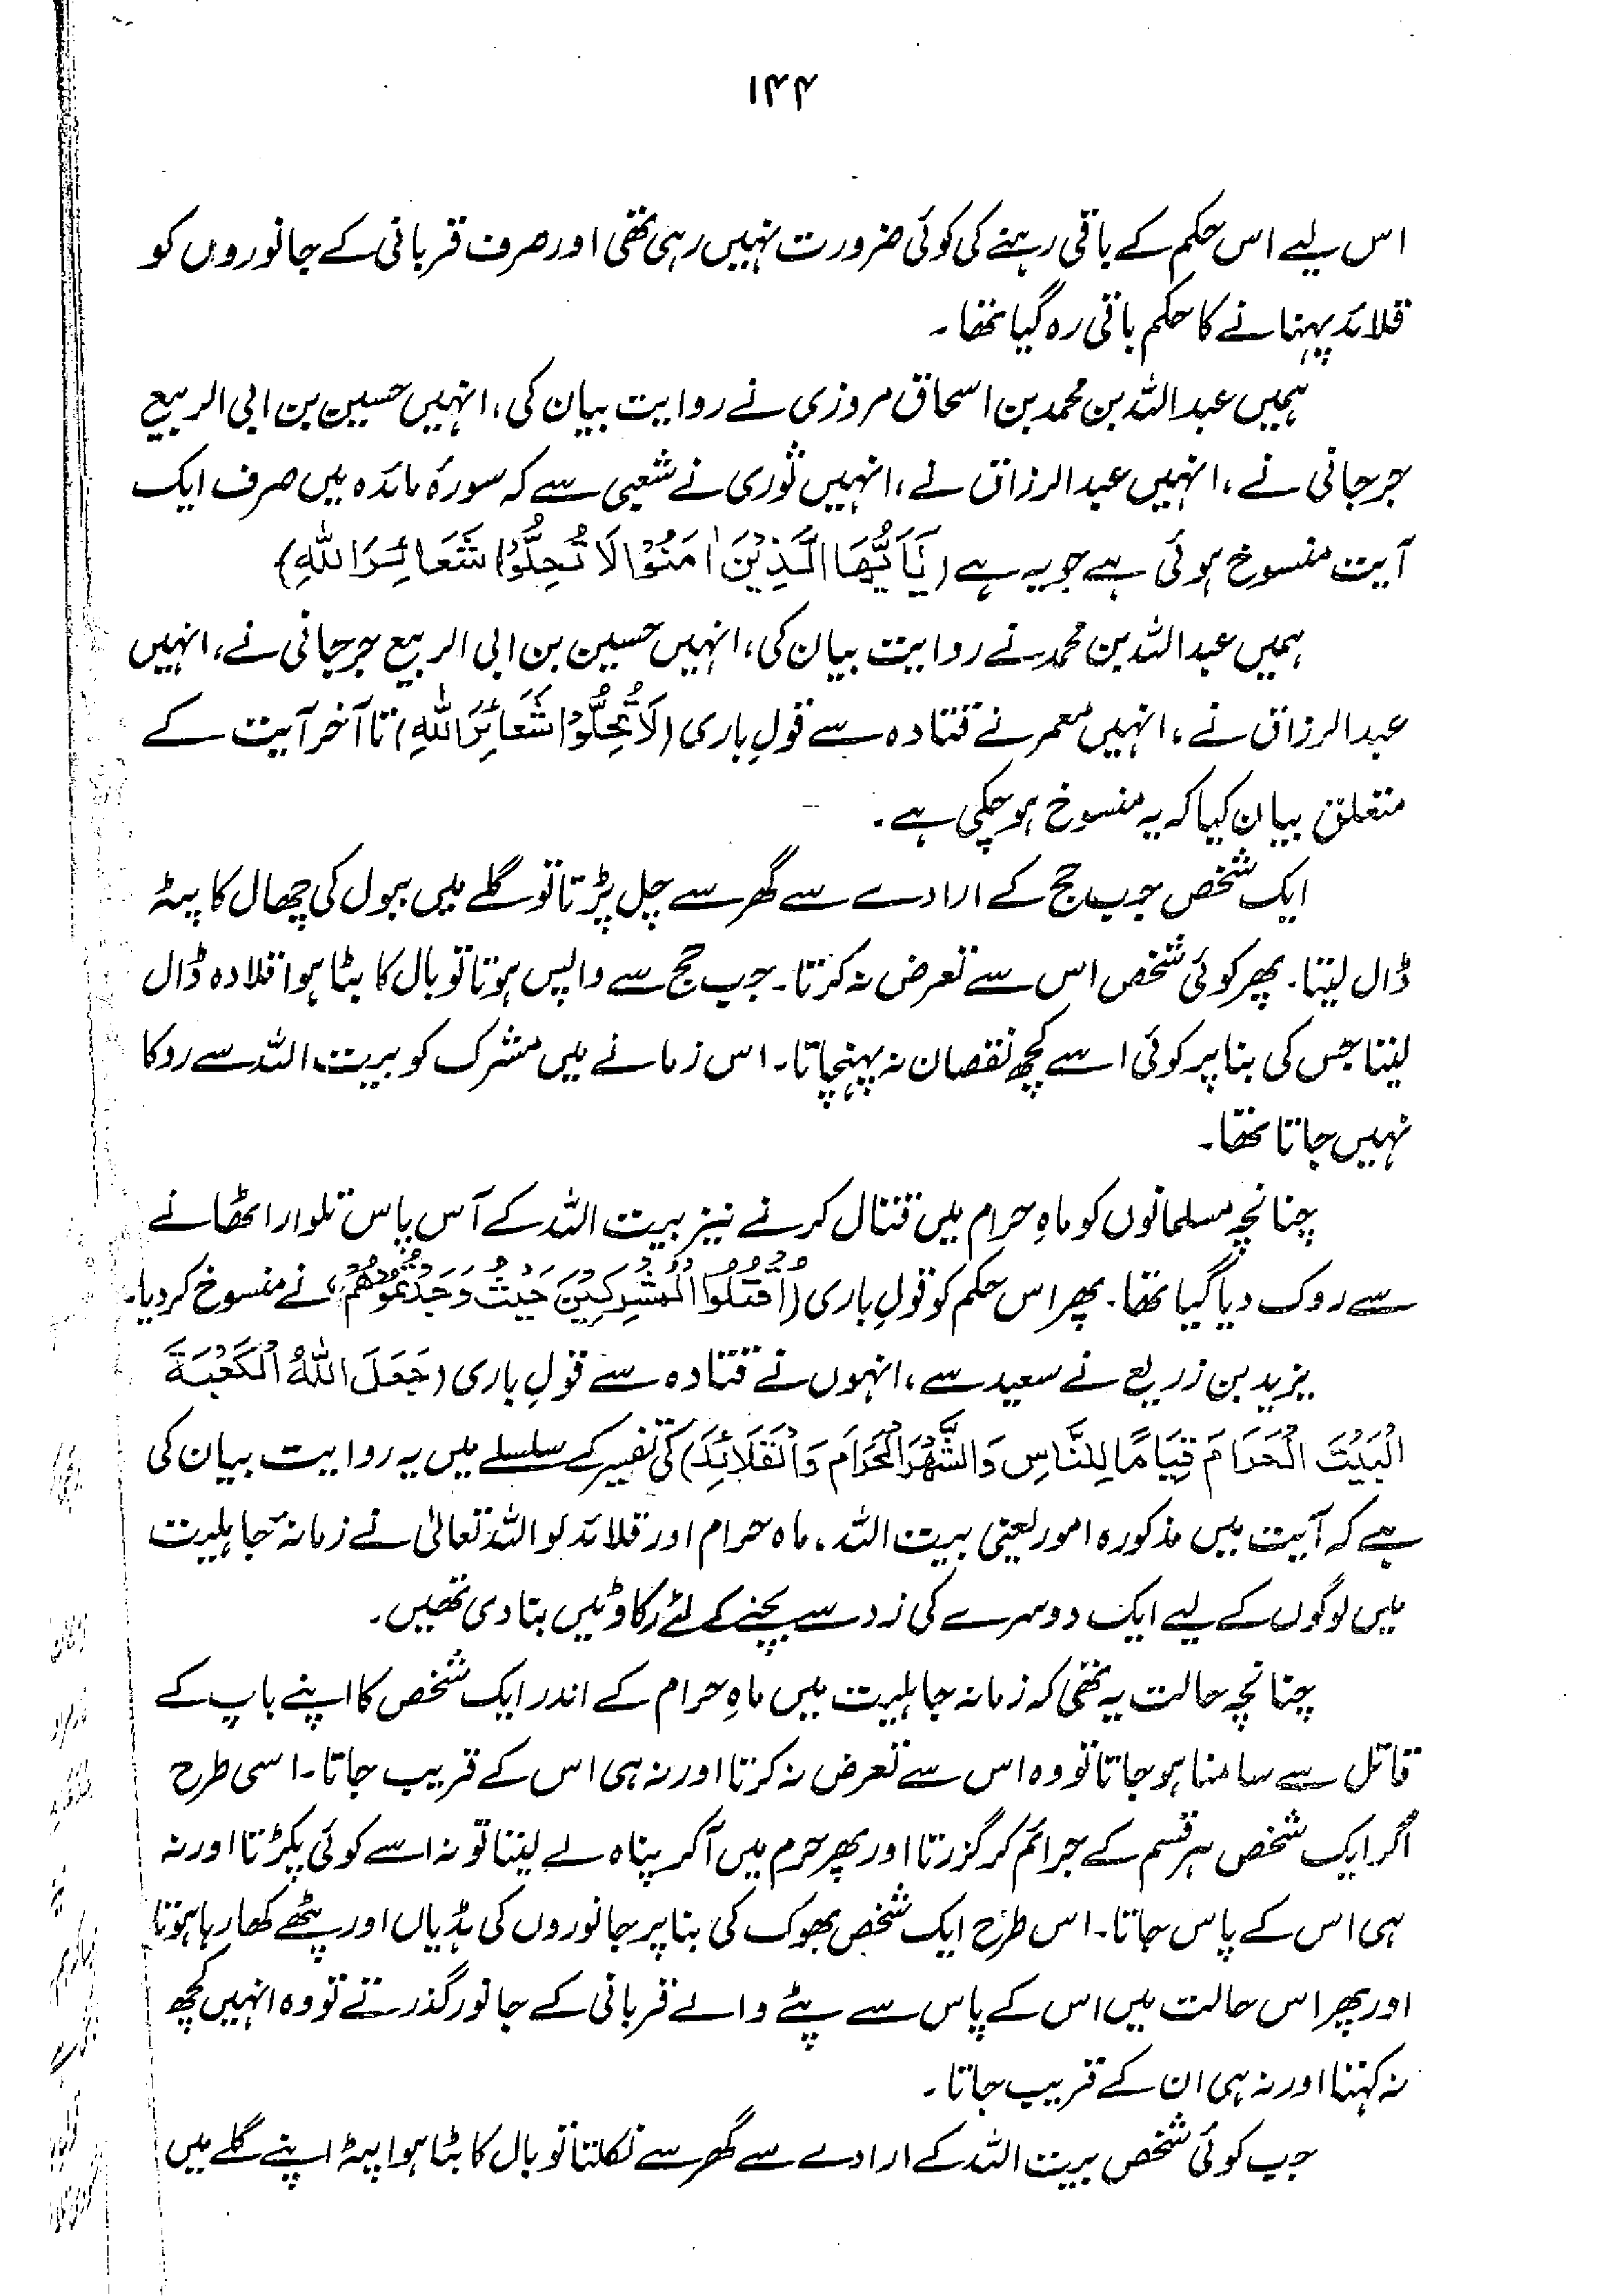 ۱۴۴
اس لیے اس حکم کے باقی رہنے کی کوئی ضرورت نہیں رہی تھی اور صرف قربانی کے جانوروں کو
قلائد پہنانے کا حکم باقی رہ گیا تھا۔
ہمیں عبداللہ بن محمد بن اسحاق مروزی نے روایت بیان کی، انہیں حسین بن ابی الربیع
جرجانی نے، انہیں عبدالرزاق نے، انہیں ثوری نے شعبی سے کہ سورۂ مائدہ میں صرف ایک
آیت منسوخ ہوئی ہے جو یہ ہے (يَآ اَيُّهَا الَّذِيْنَ اٰمَنُوْا لَا تُحِلُّوْا شَعَائِرَ اللهِ)
ہمیں عبداللہ بن محمد نے روایت بیان کی، انہیں حسین بن ابی الربیع جرجانی نے، انہیں
عبدالرزاق نے، انہیں معمر نے قتادہ سے قولِ باری (لَا تُحِلُّوْا شَعَائِرَ اللهِ) تا آخر آیت کے
متعلق بیان کیا کہ یہ منسوخ ہو چکی ہے۔
ایک شخص جب حج کے ارادے سے گھر سے چل پڑتا تو گلے میں ببول کی چھال کا پٹہ
ڈال لیتا۔ پھر کوئی شخص اس سے تعرض نہ کرتا۔ جب حج سے واپس ہوتا تو بال کا بٹا ہوا قلادہ ڈال
لیتا جس کی بنا پر کوئی اسے کچھ نقصان نہ پہنچاتا۔ اس زمانے میں مشرک کو بیت اللہ سے روکا
نہیں جاتا تھا۔
چنانچہ مسلمانوں کو ماہِ حرام میں قتال کرنے نیز بیت اللہ کے آس پاس تلوار اٹھانے
سے روک دیا گیا تھا۔ پھر اس حکم کو قولِ باری (اُقْتُلُوا الْمُشْرِكِيْنَ حَيْثُ وَجَدْتُّمُوْهُمْ) نے منسوخ کر دیا۔
یزید بن زریع نے سعید سے، انہوں نے قتادہ سے قولِ باری (جَعَلَ اللهُ الْكَعْبَةَ
الْبَيْتَ الْحَرَامَ قِيَامًا لِلنَّاسِ وَالشَّهْرَ الْحَرَامَ وَالْقَلَائِدَ) کی تفسیر کے سلسلے میں یہ روایت بیان کی
ہے کہ آیت میں مذکورہ امور یعنی بیت اللہ، ماہ حرام اور قلائد کو اللہ تعالیٰ نے زمانۂ جاہلیت
میں لوگوں کے لیے ایک دوسرے کی زد سے بچنے کے لئے رکاوٹیں بنا دی تھیں۔
چنانچہ حالت یہ تھی کہ زمانہ جاہلیت میں ماہِ حرام کے اندر ایک شخص کا اپنے باپ کے
قاتل سے سامنا ہو جاتا تو وہ اس سے تعرض نہ کرتا اور نہ ہی اس کے قریب جاتا۔ اسی طرح
اگر ایک شخص ہر قسم کے جرائم کر گزرتا اور پھر حرم میں آ کر پناہ لے لیتا تو نہ اسے کوئی پکڑتا اور نہ
ہی اس کے پاس جاتا۔ اس طرح ایک شخص بھوک کی بنا پر جانوروں کی ہڈیاں اور پٹھے کھا رہا ہوتا
اور پھر اس حالت میں اس کے پاس سے پٹے والے قربانی کے جانور گذرتے تو وہ انہیں کچھ
نہ کہتا اور نہ ہی ان کے قریب جاتا۔
جب کوئی شخص بیت اللہ کے ارادے سے گھر سے نکلتا تو بال کا بٹا ہوا پٹہ اپنے گلے میں